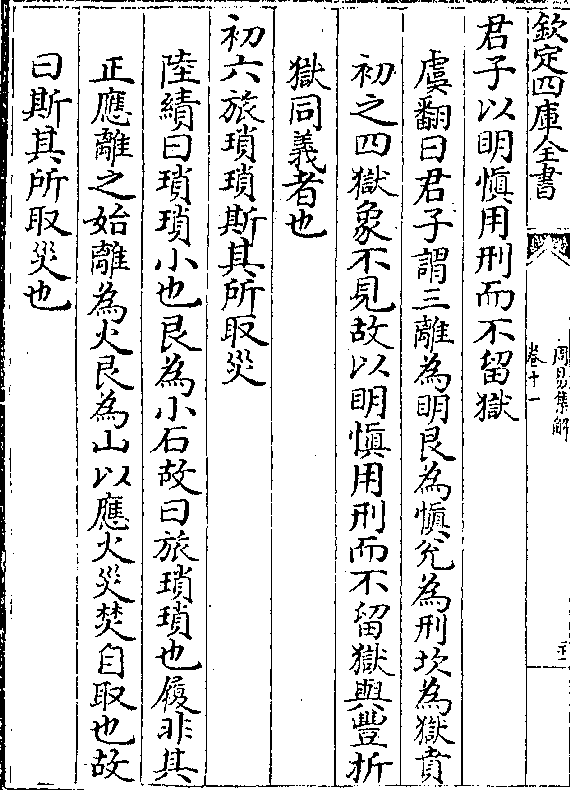 欽定四庫全書
周易集解
卷十一
君子以明慎用刑而不留獄
虞翻曰君子謂三離為明艮為慎兌為刑坎為獄賁
初之四獄象不見故以明慎用刑而不留獄與豐折
獄同義者也
初六旅瑣瑣斯其所取災
陸績曰瑣瑣小也艮為小石故曰旅瑣瑣也履非其
正應離之始離為火艮為山以應火災焚自取也故
曰斯其所取災也